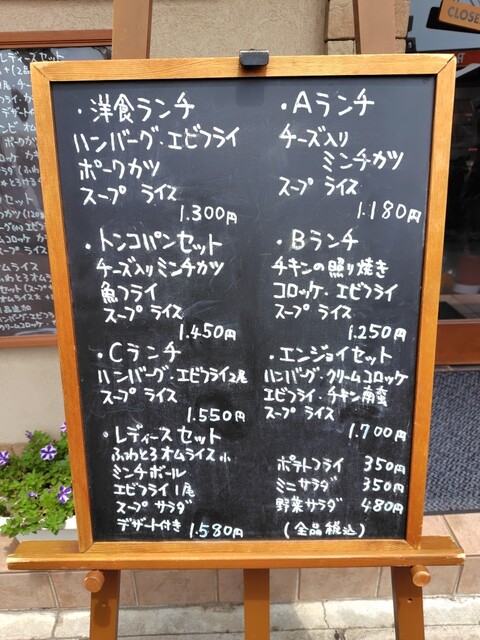 ・洋食ランチ
ハンバーグ・エビフライ
ポークカツ
スープ ライス
1.300円
・トンコパンセット
チーズ入りミンチカツ
魚フライ
スープ ライス
1.450円
・Cランチ
ハンバーグ・エビフライ2尾
スープ ライス
1.550円
・レディースセット
ふわとろオムライス小
ミンチボール
エビフライ1尾
スープ サラダ
デザート付き 1.580円
・Aランチ
チーズ入り
ミンチカツ
スープ ライス
1.180円
・Bランチ
チキンの照り焼き
コロッケ・エビフライ
スープ ライス
1.250円
・エンジョイセット
ハンバーグ・クリームコロッケ
エビフライ・チキン南蛮
スープ ライス
1.700円
ポテトフライ 350円
ミニサラダ 350円
野菜サラダ 480円
(全品税込)
CLOSE
レディースセット